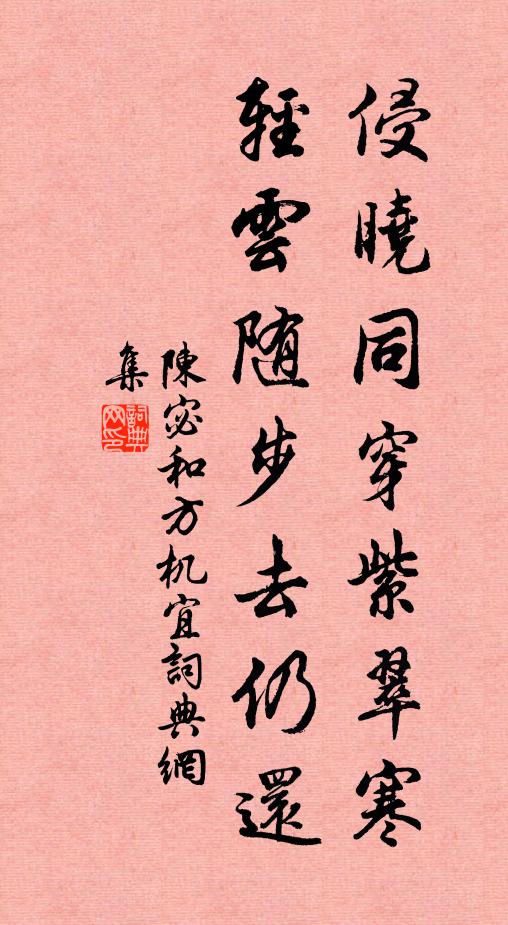 侵曉同穿紫翠寒
輕雲随步去仍還
陳宓和方机宜詞典網
集
詞典網印